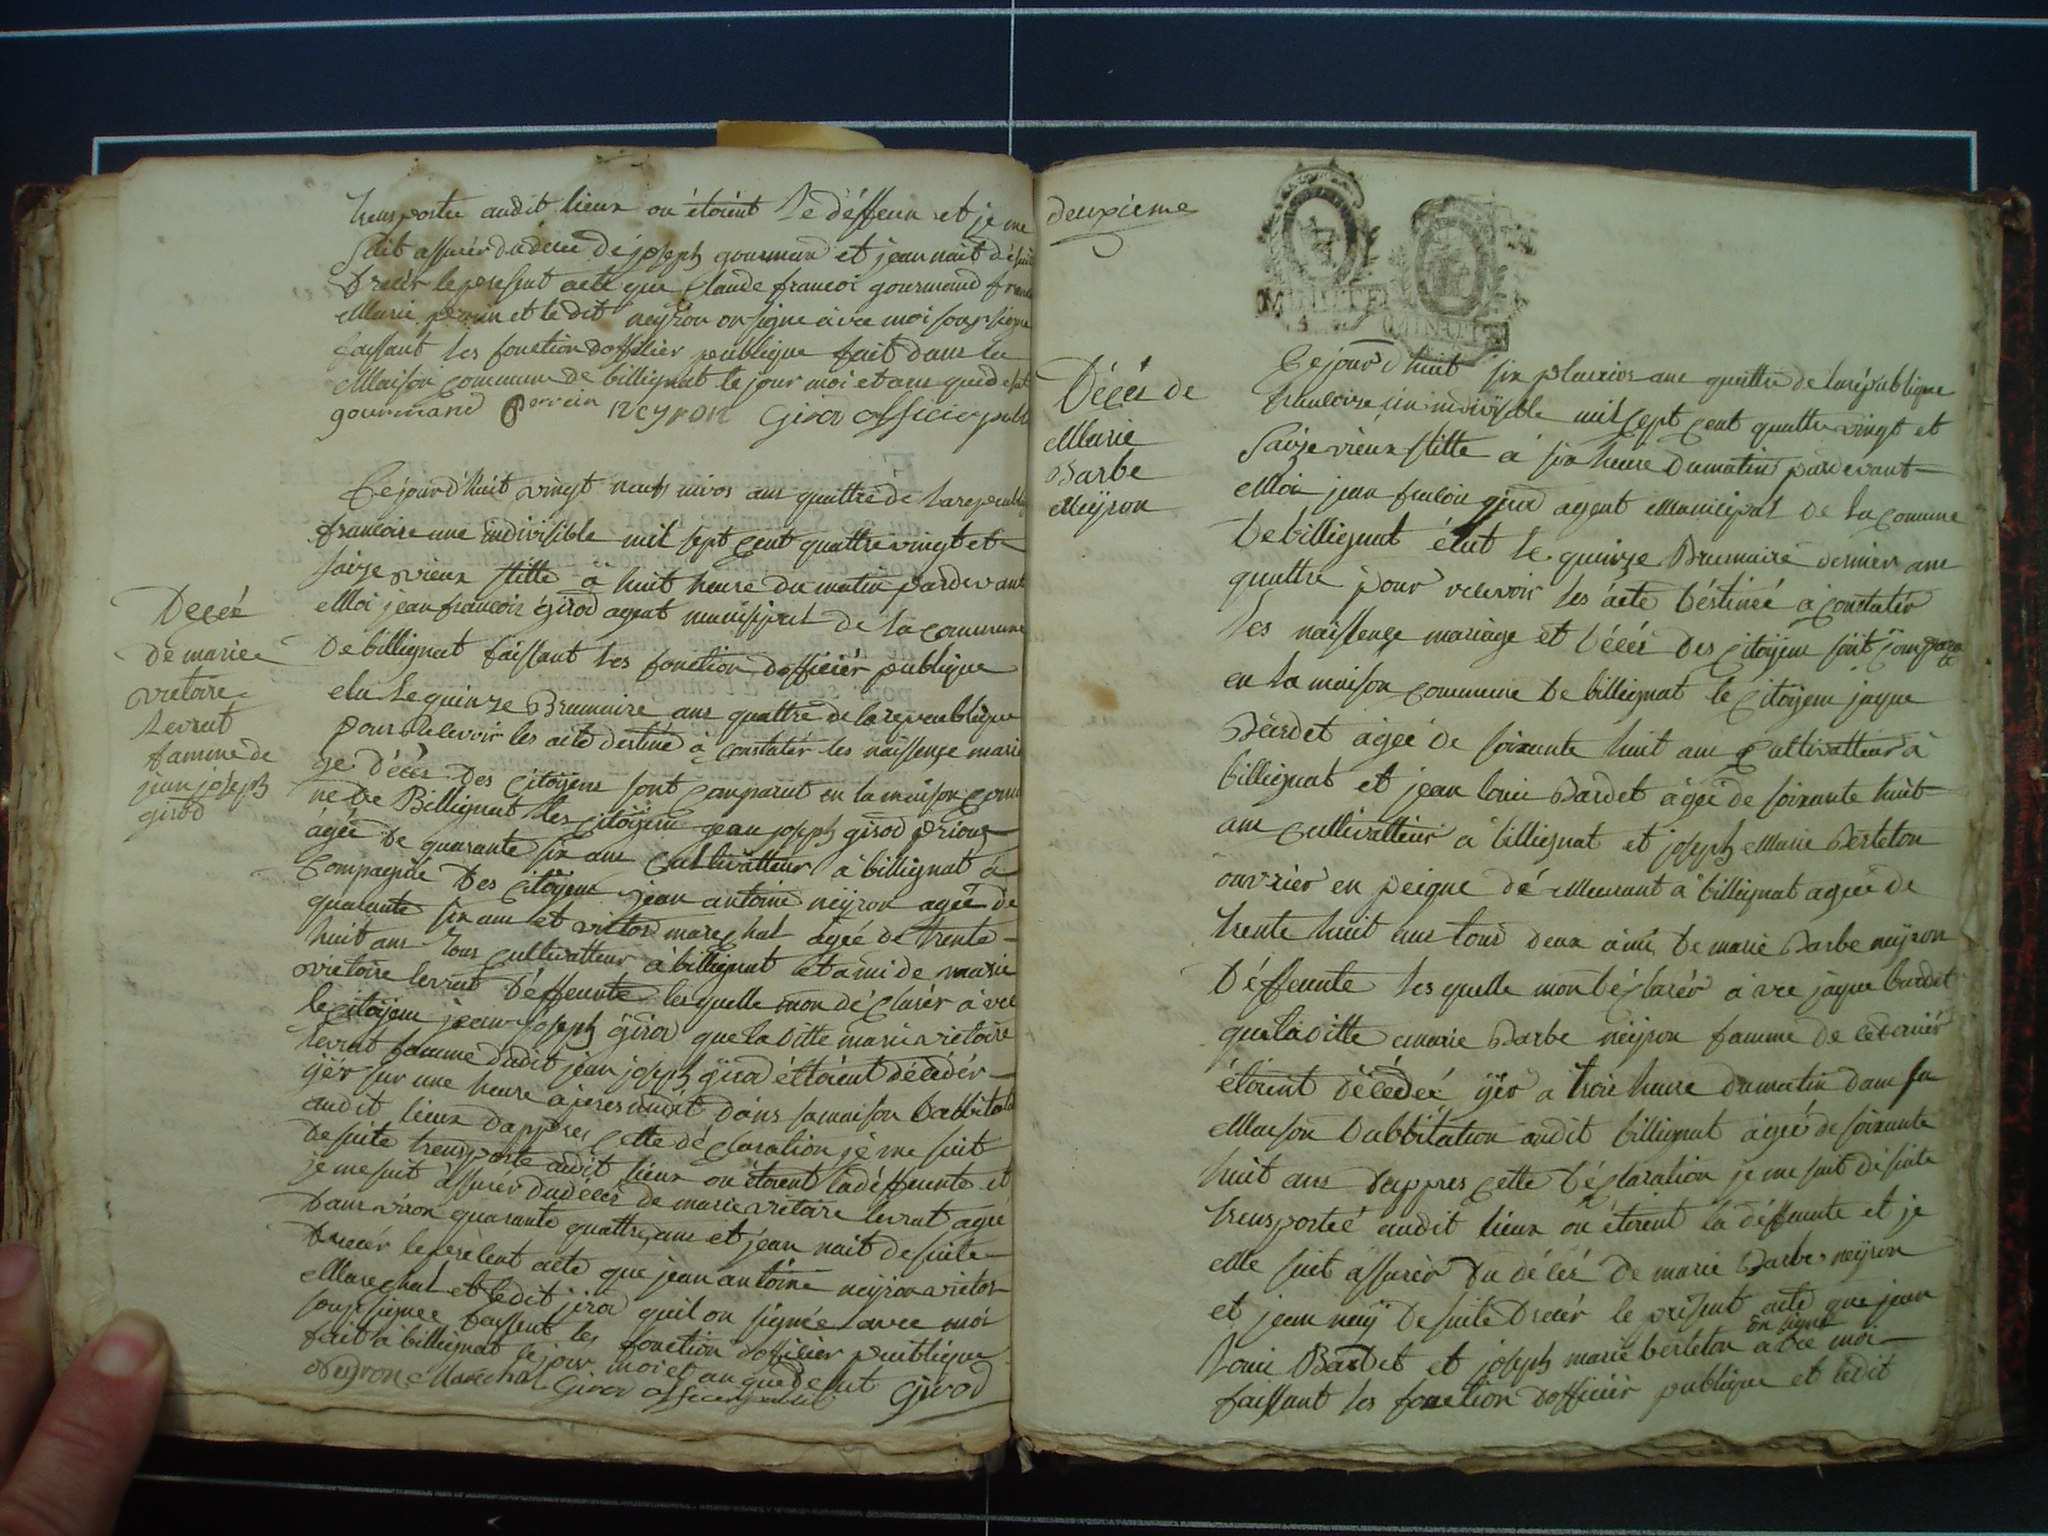 transportee audit lieux ou étoient le déffeun et je me
suit assurér du décé dé joseph gourmand et jean nait dé suit
drecér le present acte que Claude francoi gourmand
Marie perrin et le dit neyron on signe avec moi soussigne
faissant les fonction dofficier publique fait dans la
Maison commune de billiegnat le jour moi et ans que desut
gourmand Perrein neyron Girod officier publi
Cejourd'huit vingt neuf nivos ans quattre de la republi
francoise une indivisible mil sept cent quattre vingt et
saize vieux stille à huit heure du matin pardevant
Moi jean francois Girod agent munisipal de la commune
De billiegnat faissant les fonction dofficiér publique
elu le quinze Brumaire ans quattre de la republique
pour recevoir les acte destiné à constatér les naissence maria
ge décés des citoyens sont comparut en la maison comu
ne De Billiegnat les citoyem jean joseph girod
agée de quarante six ans cultivatteur à billiegnat à
compagnié des citoyens jean antoine neyron agée de
quarante six ans et victor marechal agée de trente
huit ans tous cultivatteur à billiegnat et ami de marie
victoire levrat déffeunte lesquelle mon déclarér avec
le citoyem jean joseph girod que la ditte marie victoire
levrat famme dudit jean joseph girod éttoient décédér
yér sur une heure apres midit dans sa maison
audit lieux dappres cette déclaration je me suit
de suite transporte audit lieux ou étoient la déffeunte et
je me suit assurér du décés de marie victoire levrat agée
Danviron quarante quattre ans et jéan nait de suite
drecér le present acte que jean antoine neyron victor
Marechal et le dit jirod quil on signée avec moi
soussignee faissent les fonction dofficier publique
fait à billiegnat le jour moi et an que desut
Neyron Maréchal Girod officier publi Girod
Decéx
de marie
victoire
Levrat
famme de
jean joseph
girod
deuxieme
Cejourd'huit six pluvios ans quattre de la république
francoise une indivisible mil sept cent quattre vingt et
saize vieux stille à six heure du matin pardevant
Moi jean francoi girod agent Municipal de la comune
De billiegnat élut le quinze Brumaire dernier ans
quattre pour recevoir les acte déstineé à constatér
les naissence mariage et décés des citoyem sont compara
en la maison commune de billiegnat le citoyem jaque
Bardet agée de soixante huit ans cultivatteur à
billiegnat et jean louis Bardet agée de soixante huit
ans cultivatteur à billiegnat et joseph Marie Berleton
ouvrier en peigne dé Meurant à billiegnat agée de
trente huit ans tous deux ami de marie Barbe neyron
Déffeunte les quelle mon déclarér avec jaque bardet
que la ditte marie Barbe neyron famme de
étoient décedeé yér a trois heure du matin dans sa
Maison dabbitation audit billiegnat agée de soixante
huit ans dappres cette déclaration je me suit de suite
transporteé audit lieux ou étoient la déffeunte et je
Me suit assurér du décés de marie Barbe neyron
et jeannay de suite drecér le present acte que jean
on signé
Louis Bardet et joseph marie berleton avec moi
faissant les fonction dofficiér publique et ledit
Décés de
Marie
Barbe
Neÿron